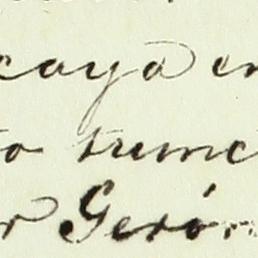 caya en
to trunc
r Gerón